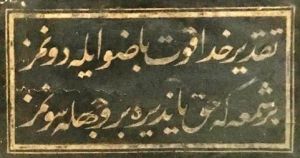 تقدیر خدا قوت باضو ایله دونمز
بر شمعه که حق یاندیره بر وجهله سونمز